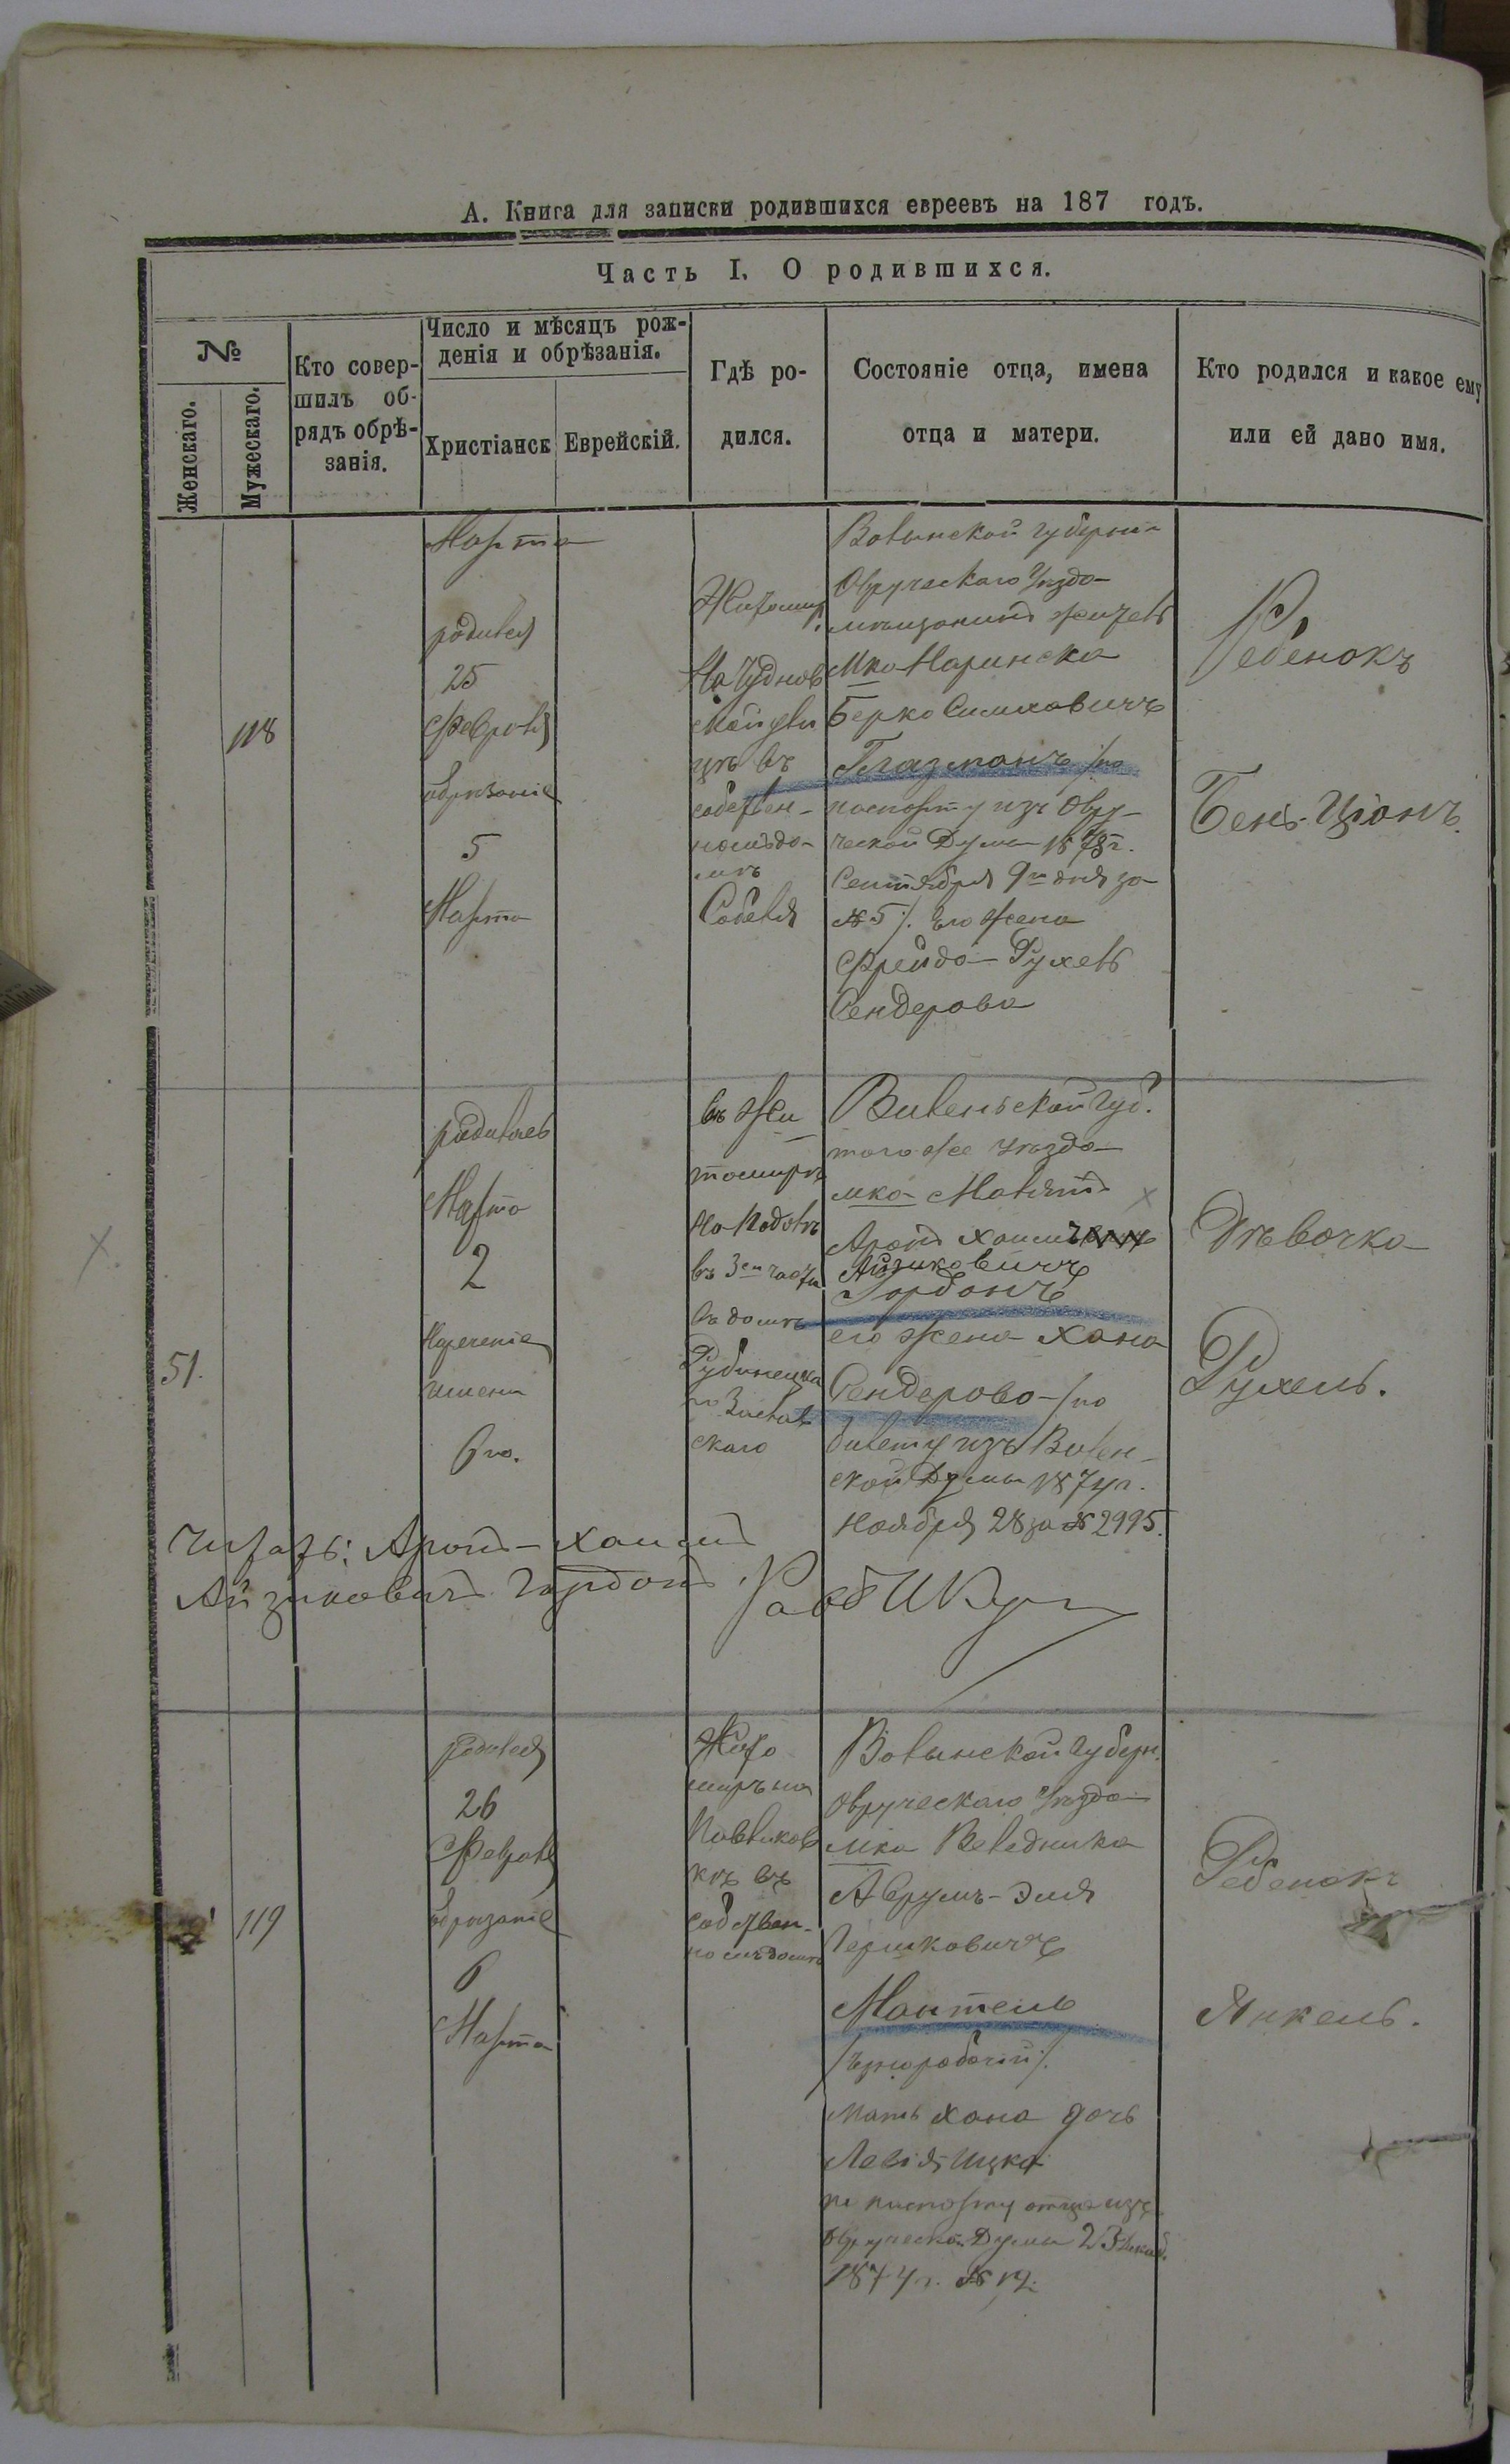 А. Книга для записки родившихся евреевъ на 187 годъ.
Часть I. О родившихся.
№
Женскаго.
Мужескаго.
Кто совер-
шилъ об-
рядъ обрѣ-
занія.
Число и мѣсяцъ рож-
денія и обрѣзанія.
Христіанск
Еврейскій.
Гдѣ ро-
дился.
Состояніе отца, имена
отца и матери.
Кто родился и какое ему
или ей дано имя.
118
Марта
родился
25
Февраля
обрѣзаніе
5
Марта
Житомир.
На Чуднов
ской ули
цѣ въ
собствен-
номъ до-
мѣ
Волынской губерніи
Овручскаго Уѣзда
мѣщанинъ житель
мка Наринска
Берко Симховичъ
Глазманъ /по
паспорту изъ Овру-
ческой Думы
Сентября 9го дня за
№ 5/. Его жена
Фрейда-Рухель
Сендерова
Ребенокъ
Бенъ-Ціонъ.
51.
родилась
Марта
2
Нареченіе
имени
6го.
въ Жи
томирѣ
На Подолѣ
въ 3ей части
въ домѣ
скаго
Виленьской губ.
того же уѣзда
мка Молятъ
Аронъ Хаимъ
Айзиковичъ
Гордонъ
его жена Хана
Сендерово-/по
билету изъ Вилен-
ской Думы 1874г.
Ноября 28 за № 2995.
Дѣвочка
Рухель.
Читать: Аронъ-Хаимъ
Айзиковичъ Гордонъ.
119
родился
26
Февраля
обрѣзаніе
6
Марта
Жито
миръ на
Павликов
кѣ въ
собствен-
номъ домѣ
Волынской губерн.
Овручскаго Уѣзда
мка Веледника
Аврумъ-Эля
Гершковичъ
Мантель
/чернорабочій/.
Мать Хана дочь
Левія Ицка
по паспорту отца изъ
Овручской Думы 23 Декаб.
1874г. № 19.
Ребенокъ
Янкель.